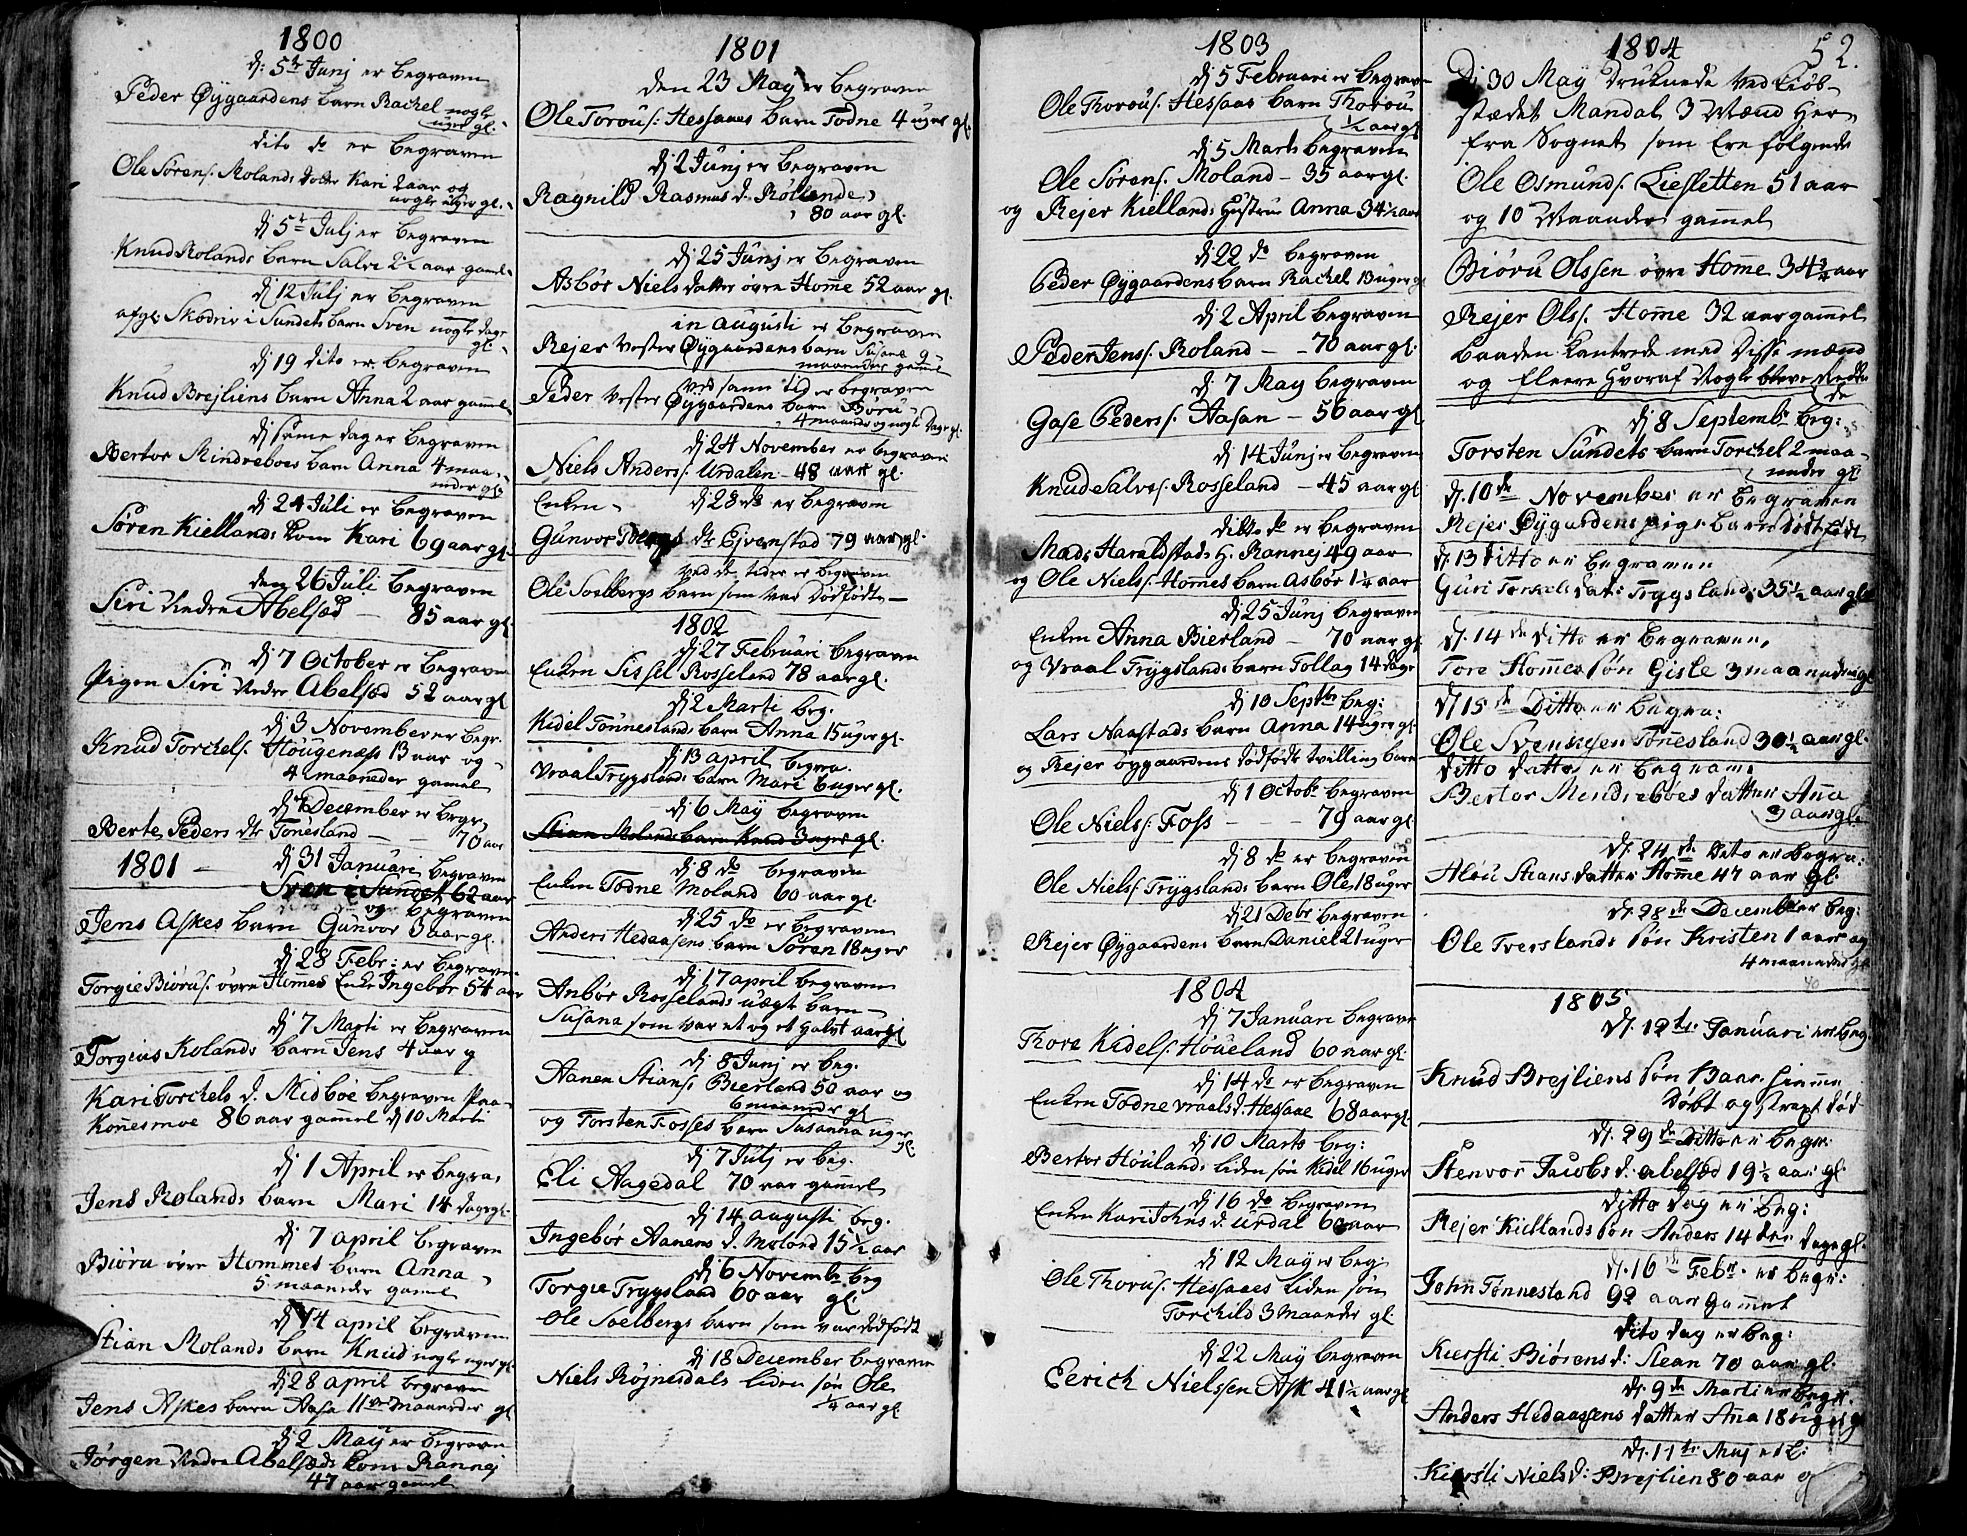 1800
d: 5te Junj er begraven
Peder Øygaardens barn Rachel nogle
uger gl.
dito do er begraven
Ole Sørens. Molands dotter Kari 2 aar og
nogle uger gl.
dj 5te Julj er begraven
Knud Rolands barn Salve 2½ aar gamel
dj 12 Julj er begraven
afgl. Skodriv i Sundets barn Sven nogle dage
gl.
dj 19 dito er begraven
Knud Brejliens barn Anna 2 aar gamel
dj same dag er begraven
Bertor Mindreboes barn Anna 4 maa-
neder gl.
dj 24 Juli er begraven
Søren Kiellands kone Kari 69 aar gl.
den 26 Juli begraven
Siri Nedre Abelsød 85 aar gl.
dj 7 October er begraven
Pigen Siri Nedre Abelsød 52 aar gl
dj 3 November er begr.
Knud Torckels. Hougenæss 13 aar og
4 maaneder gamel
dj December er begr.
Berte Peders dtr Tonesland — 70 aar
1801 — dj 31 Januari begraven
Sven Sundet 62 aar
og begraven
Jens Askes barn Gunvor 3 aar gl.
dj 28 Febr: er begraven
Torgie Biørus. øvre Homes Enke Ingebor 54 aar
dj 7 Marti er begraven
Torgius Rolands barn Jens 4 aar g
Kari Torckels d. Midboe begraven paa
Konesmoe 86 aar gammel dj 10 Marti
dj 1 April er begra.
Jens Rolands barn Mari 14 dage gl.
dj 7 april begraven
Biøru øvre Hommes barn Anna
5 maaneder gamel
dj 14 april begraven
Stian Molands barn Knud nogle uger gl
dj 28 april begraven
Jens Askes barn Aasa 11 maaneder gl
dj 2 Maij er begraven
Jørgen Nedre Abelsøds kone Rannej
47 aar gamel
1801
den 23 Maij er begraven
Ole Torous. Hessaaes barn Todne 4 uger gl.
dj 2 Junj er begraven
Ragnild Rasmus d. Røllende
80 aar gl.
dj 25 Junj er begraven
Asbør Niels datter øvre Home 52 aar gl.
in augusti er begraven
Rejer Vester Øygaardens barn Susane 9
maaneder gamel
ved samme tid er begraven
Peder Vester Øygaardens barn Boru
4 maaneder og nogle dage gl.
dj 24 November er begraven
Niels Anders. Urdalen 48 aar gl.
Enken dj 28 do er begraven
Gunvor dtr Ejvenstad 79 aar gl.
ved de tider er begraven
Ole Soelbergs barn som var dødfødte —
1802
dj 27 Februari begraven
Enken Sissel Rosseland 78 aar gl.
dj 2 Marti beg.
Kidel Tonneslands barn Anna 15 uger gl.
dj 13 april begra.
Vraal Trygslands barn Mari 6 uger gl.
dj 6 Maij begraven
Stian Molands barn Knud 3 uger gl.
dj 8 do begraven
Enken Todne Moland 60 aar gl.
dj 25 do er begraven
Anders Hedaasens barn Søren 18 uger
dj 17 april begraven
Anbør Rosselands uægt barn
Susana som var et og et halvt aar gl
dj 8 Junj er beg.
Aanen Stians. Bierland 50 aar og
6 maaneder gl
og Torsten Fosses barn Susanna uger
gl.
dj 7 Julj er beg.
Eli Aagedal 70 aar gamel
dj 14 augusti beg.
Ingebør Aanens d. Moland 15½ aar
dj 6 Novembr beg
Torgie Trygsland 60 aar gl
Ole Soelbergs barn som var dødfødt
dj 18 December begraven
Niels Røjnesdals liden søn Ole
¼ aar gl
1803
dj 5 Februari er begraven
Ole Thorous. Hessaas barn Thorou
½ aar gl
dj 5 Marts begraven
Ole Sørens. Moland — 35 aar gl.
og Rejer Kiellands Hustrue Anna 34½ aar
dj 22 do begraven
Peder Øygaardens barn Rachel 13 uger gl
dj 2 April begraven
Peder Jens. Roland — 70 aar gl.
dj 7 May begraven
Gose Peders. Aasan — 56 aar gl
dj 14 Junj er begraven
Knud Salves. Rosseland — 45 aar gl
ditto do er begraven
Mads Haraldstads h. Rannej 49 aar
og Ole Niels. Homes barn Asbør 1¼ aar
dj 25 Junj begraven
Enken Anna Bierland — 70 aar gl
og Vraal Trygslands barn Tollag 14 dage
dj 10 Septbr beg:
Lars Naastads barn Anna 14 uger gl.
og Rejer øygaardens dødfødte tvilling barn
dj 1 Octobr begraven
Ole Niels. Foss — — 79 aar gl.
dj 8 do er begraven
Ole Niels. Trygslands barn Ole 18 uger
dj 21 Debr. begraven
Rejer Øygaardens barn Daniel 21 uger
1804
dj 7 Januari begraven
Thore Kidels. Høueland 60 aar gl.
dj 14 do er begraven
Enken Todne Vraals d. Hessaae 68 aar gl
dj 10 Marts beg:
Bertor Houlands liden søn Kidel 16 uger
dj 16 do begraven
Enken Kari Johns d. Urdal 60 aar
dj 12 May er beg
Ole Thorus. Hessaaes liden søn
Torchild 3 Maaneder gl
dj 22 Maij begraven
Eerich Nielssen Ask 41½ aar gl
1804 52.
Dj 30 May druknede ved Kiøb-
stædet Mandal 3 Mænd her
fra Sognet som ere følgende
Ole Osmunds. Liesletten 51 aar
og 10 Maaneder gammel
Biøru Olssen øvre Home 34¾ aar
Rejer Ols. Home 32 aar gammel
baaden kantrede med disse mænd
og fleere hvoraf Nogle bleve Redde
de
dj 8 Septembr beg:
Torsten Sundets barn Torckel 2 maa-
neder gl
dj. 10de November er begraven
Rejer Øygardens pige barn dødfødt
dj 13 ditto er begraven
Guri Torkels dat: Trygsland 35½ aar gl
dj. 14de ditto er begraven,
Tore Homes søn Gisle 3 maaneder gl
dj 15de Ditto er begra:
Ole Svennsen Tonesland 30½ aar gl.
ditto datto er begravn.
Bertor Mindreboes datter Ana
3 aar gl.
dj. 24de Dito er begra:
Aslou Stians datter Home 47 aar gl.
dj. 28de December beg:
Ole Tverslands søn Kristen 1 aar og
4 maaneder gl
1805
dj. 12te Januari er beg
Knud Brejliens søn Baar hiemme
døbt og strax død
dj. 29de Ditto er begr:
Stenvor Jacobs d: abelsød 19½ aar gl
ditto dag er beg:
Rejer Kiellands søn Anders 14 dage gl.
dj. 16de Febr. er begr:
John Tønnesland 92 aar gammel
dito dag er beg:
Kiersti Biørens d: Slean 70 aar gl:
dj. 9de Marti er begr.
Anders Hedaassens datter Ana 18 uger gl
dj. 11te Maj er b:
Kiersti Niels d: Brejlien 80 aar g